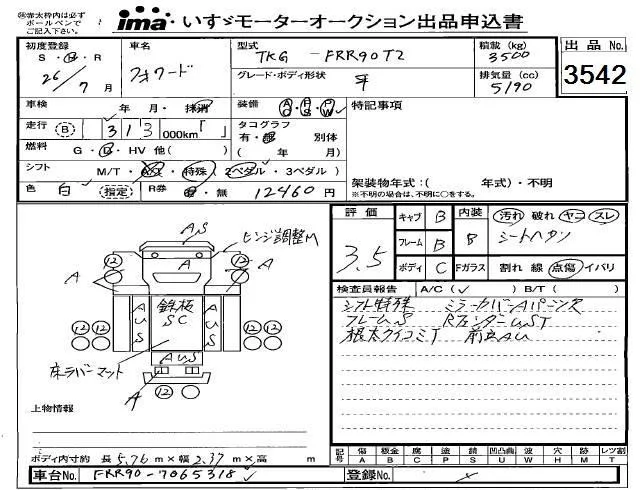 ※赤太枠内は必ず
ボールペンで
ご記入下さい。
ima・いすゞモーターオークション出品申込書
初度登録
S・H・R
26/7月
車名
フォワード
型式
TKG-FRR90T2
グレード・ボディ形状
平
積載(kg)
3500
排気量(cc)
5190
出品No.
3542
車検
年 月・抹消
装備
AC・PS・PW
特記事項
走行(B)
313000km「 」
タコグラフ
有・無 別体
( 年 月)
燃料
G・D・HV 他( )
シフト
M/T・A/T・特殊(2ペダル・3ペダル)
色
白
(指定)
R券
有・無
12460円
架装物年式:( 年式)・不明
※不明の場合は、不明に○をする。
評価
3.5
キャブ B
フレーム B
ボディ C
内装 B
汚れ 破れ ヤニ スレ
シートヘタリ
Fガラス
割れ 線 点傷 イバリ
検査員報告
A/C(✓) B/T( )
シフト特殊 ミラーカバーAパーンズ
フレームS
根太クイコミT 前立AU
AS
ヒンジ調整M
12
12
A
A
A
鉄板
SC
AUS
AUS
12
12
12
12
AUS
床ラバーマット
A
12
上物情報
ボディ内寸約 長5.76m×幅2.37m×高 m
記号
傷 A
板金 B
腐 C
塗 P
錆 S
凹凸曲 U
波 W
穴 H
外 M
レツ割 T
車台No.
FRR90-7065318
登録No.